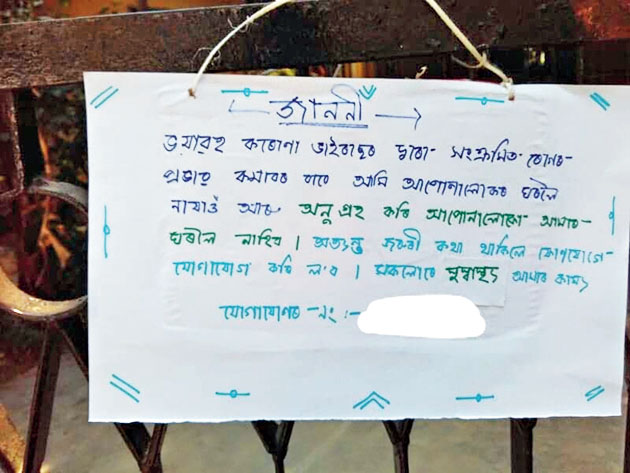 জাননী
ভয়াবহ কৰোণা ভাইৰাছৰ দ্বাৰা সংক্ৰমিত ৰোগৰ
প্ৰভাৱ কমাবৰ বাবে আমি আপোনালোকৰ ঘৰলৈ
নাযাওঁ আৰু অনুগ্ৰহ কৰি আপোনালোকো আমাৰ
ঘৰলৈ নাহিব। অত্যন্ত জৰুৰী কথা থাকিলে ফোনযোগে
যোগাযোগ কৰি ল'ব। সকলোৰে সুস্বাস্থ্য আমাৰ কাম্য
যোগাযোগৰ নং :-